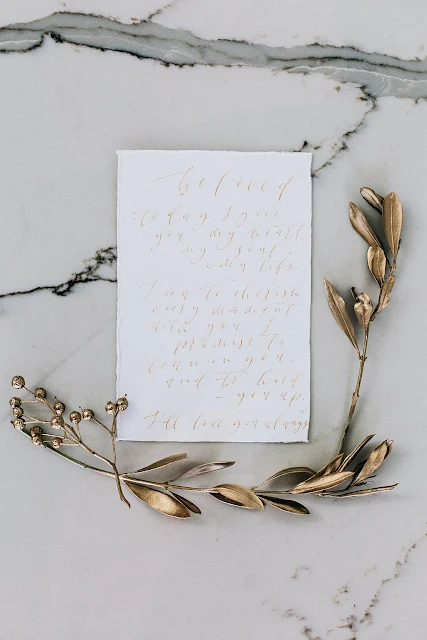 beloved
today I give
you my heart,
my soul,
my life.
I vow to cherish
every moment
with you. I
promise to
lean on you.
and to hold
you up.
I'll love you always